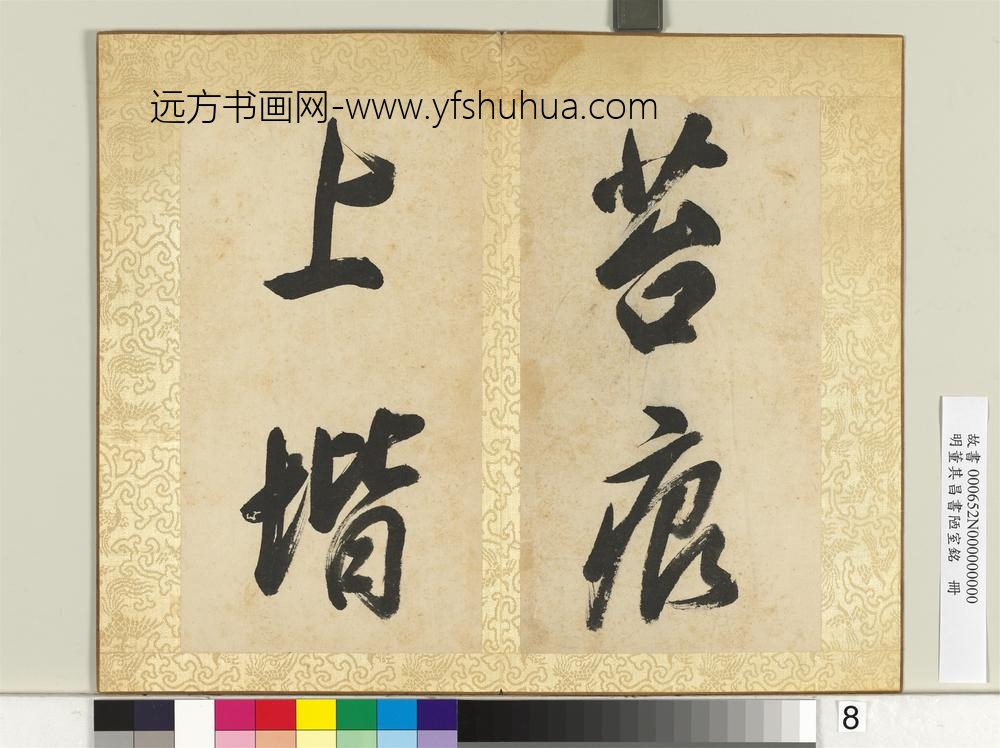 远方书画网-www.yfshuhua.com
苔痕
上堦
故書 000652N000000000
明董其昌書陋室銘 冊
8